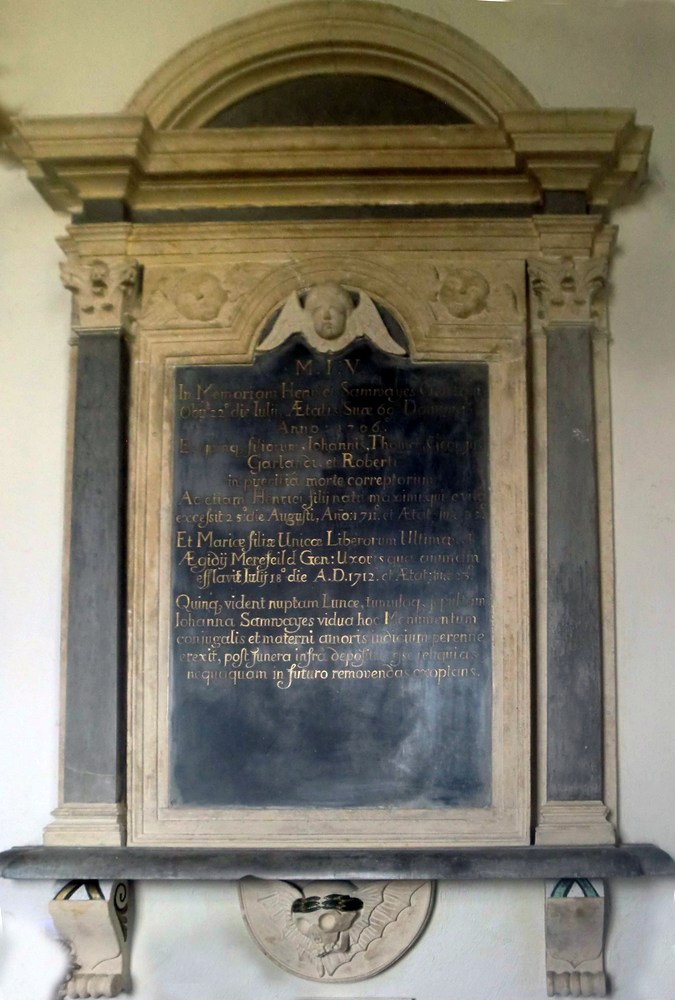 M.I.V
In Memoriam Samwayes
Obijt 22° die Iulij Ætatis Suæ
Anno: 1706.
filiorum, Iohannis, Thomæ, Georgij
Garlandi et Roberti
in pueritia morte correptorum
Ac etiam Henrici filij natu maximi qui e vita
excessit die Augusti, Año: et Ætat:
Et Mariæ filiæ Unicæ Liberorum Ultimæ et
Ægidij Merefeild Gen: Uxoris quæ animam
efflavit Iulij 18° die A.D. 1712. et Ætat: suæ
Quinq vident nuptam Lunæ, tumuloq
Iohanna Samwayes vidua hoc Monumentum
conjugalis et materni amoris indicium perenne
erexit, post funera infra reliquias
nequaquam in futuro removendas exoptans.